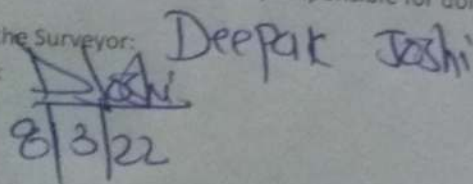 he Surveyor: Deepak Joshi
DJoshi
8/3/22